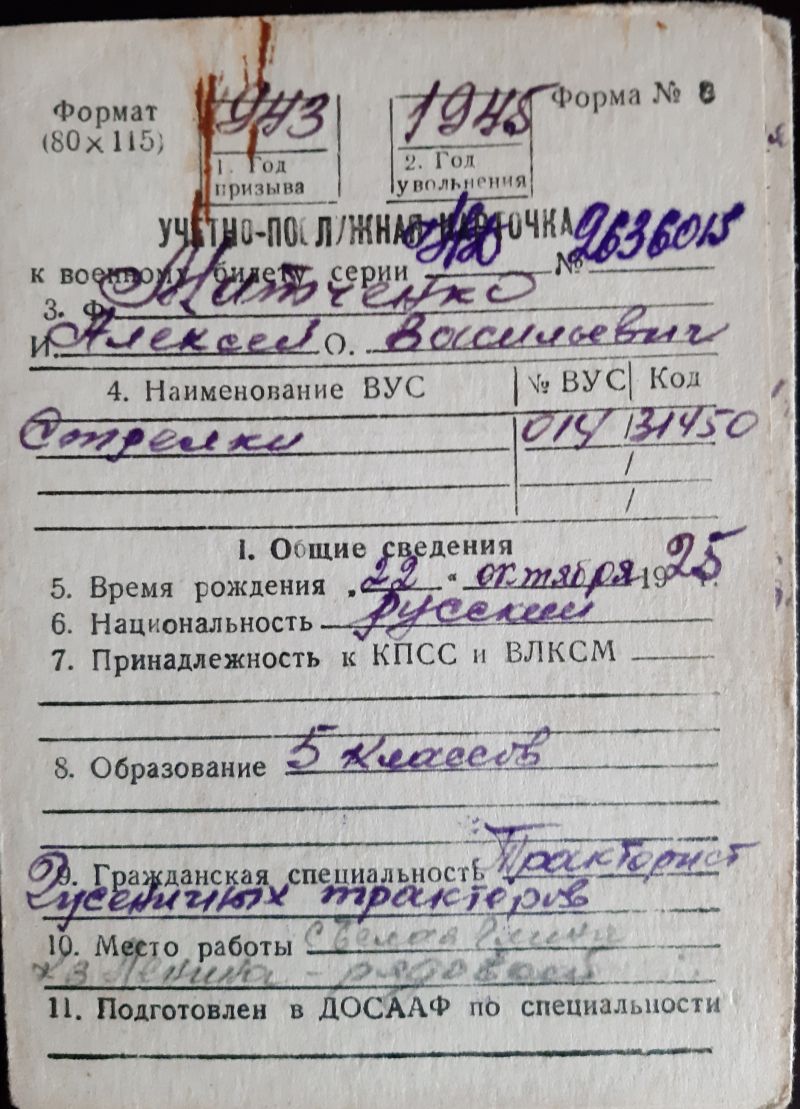 Формат
(80×115)
1943
1. Год
призыва
1945
2. Год
увольнения
Форма № 8
УЧЕТНО-ПОСЛУЖНАЯ КАРТОЧКА
к военному билету серии № 2636015
3. Ф. Митченко
И. Алексей О. Васильевич
4. Наименование ВУС № ВУС Код
Стрелки 014 / 31450
/
/
I. Общие сведения
5. Время рождения „22“ октября 1925 г.
6. Национальность русский
7. Принадлежность к КПСС и ВЛКСМ
8. Образование 5 классов
9. Гражданская специальность Тракторист
Гусеничных тракторов
10. Место работы с Белая Глина
Ленина - рядовой
11. Подготовлен в ДОСААФ по специальности